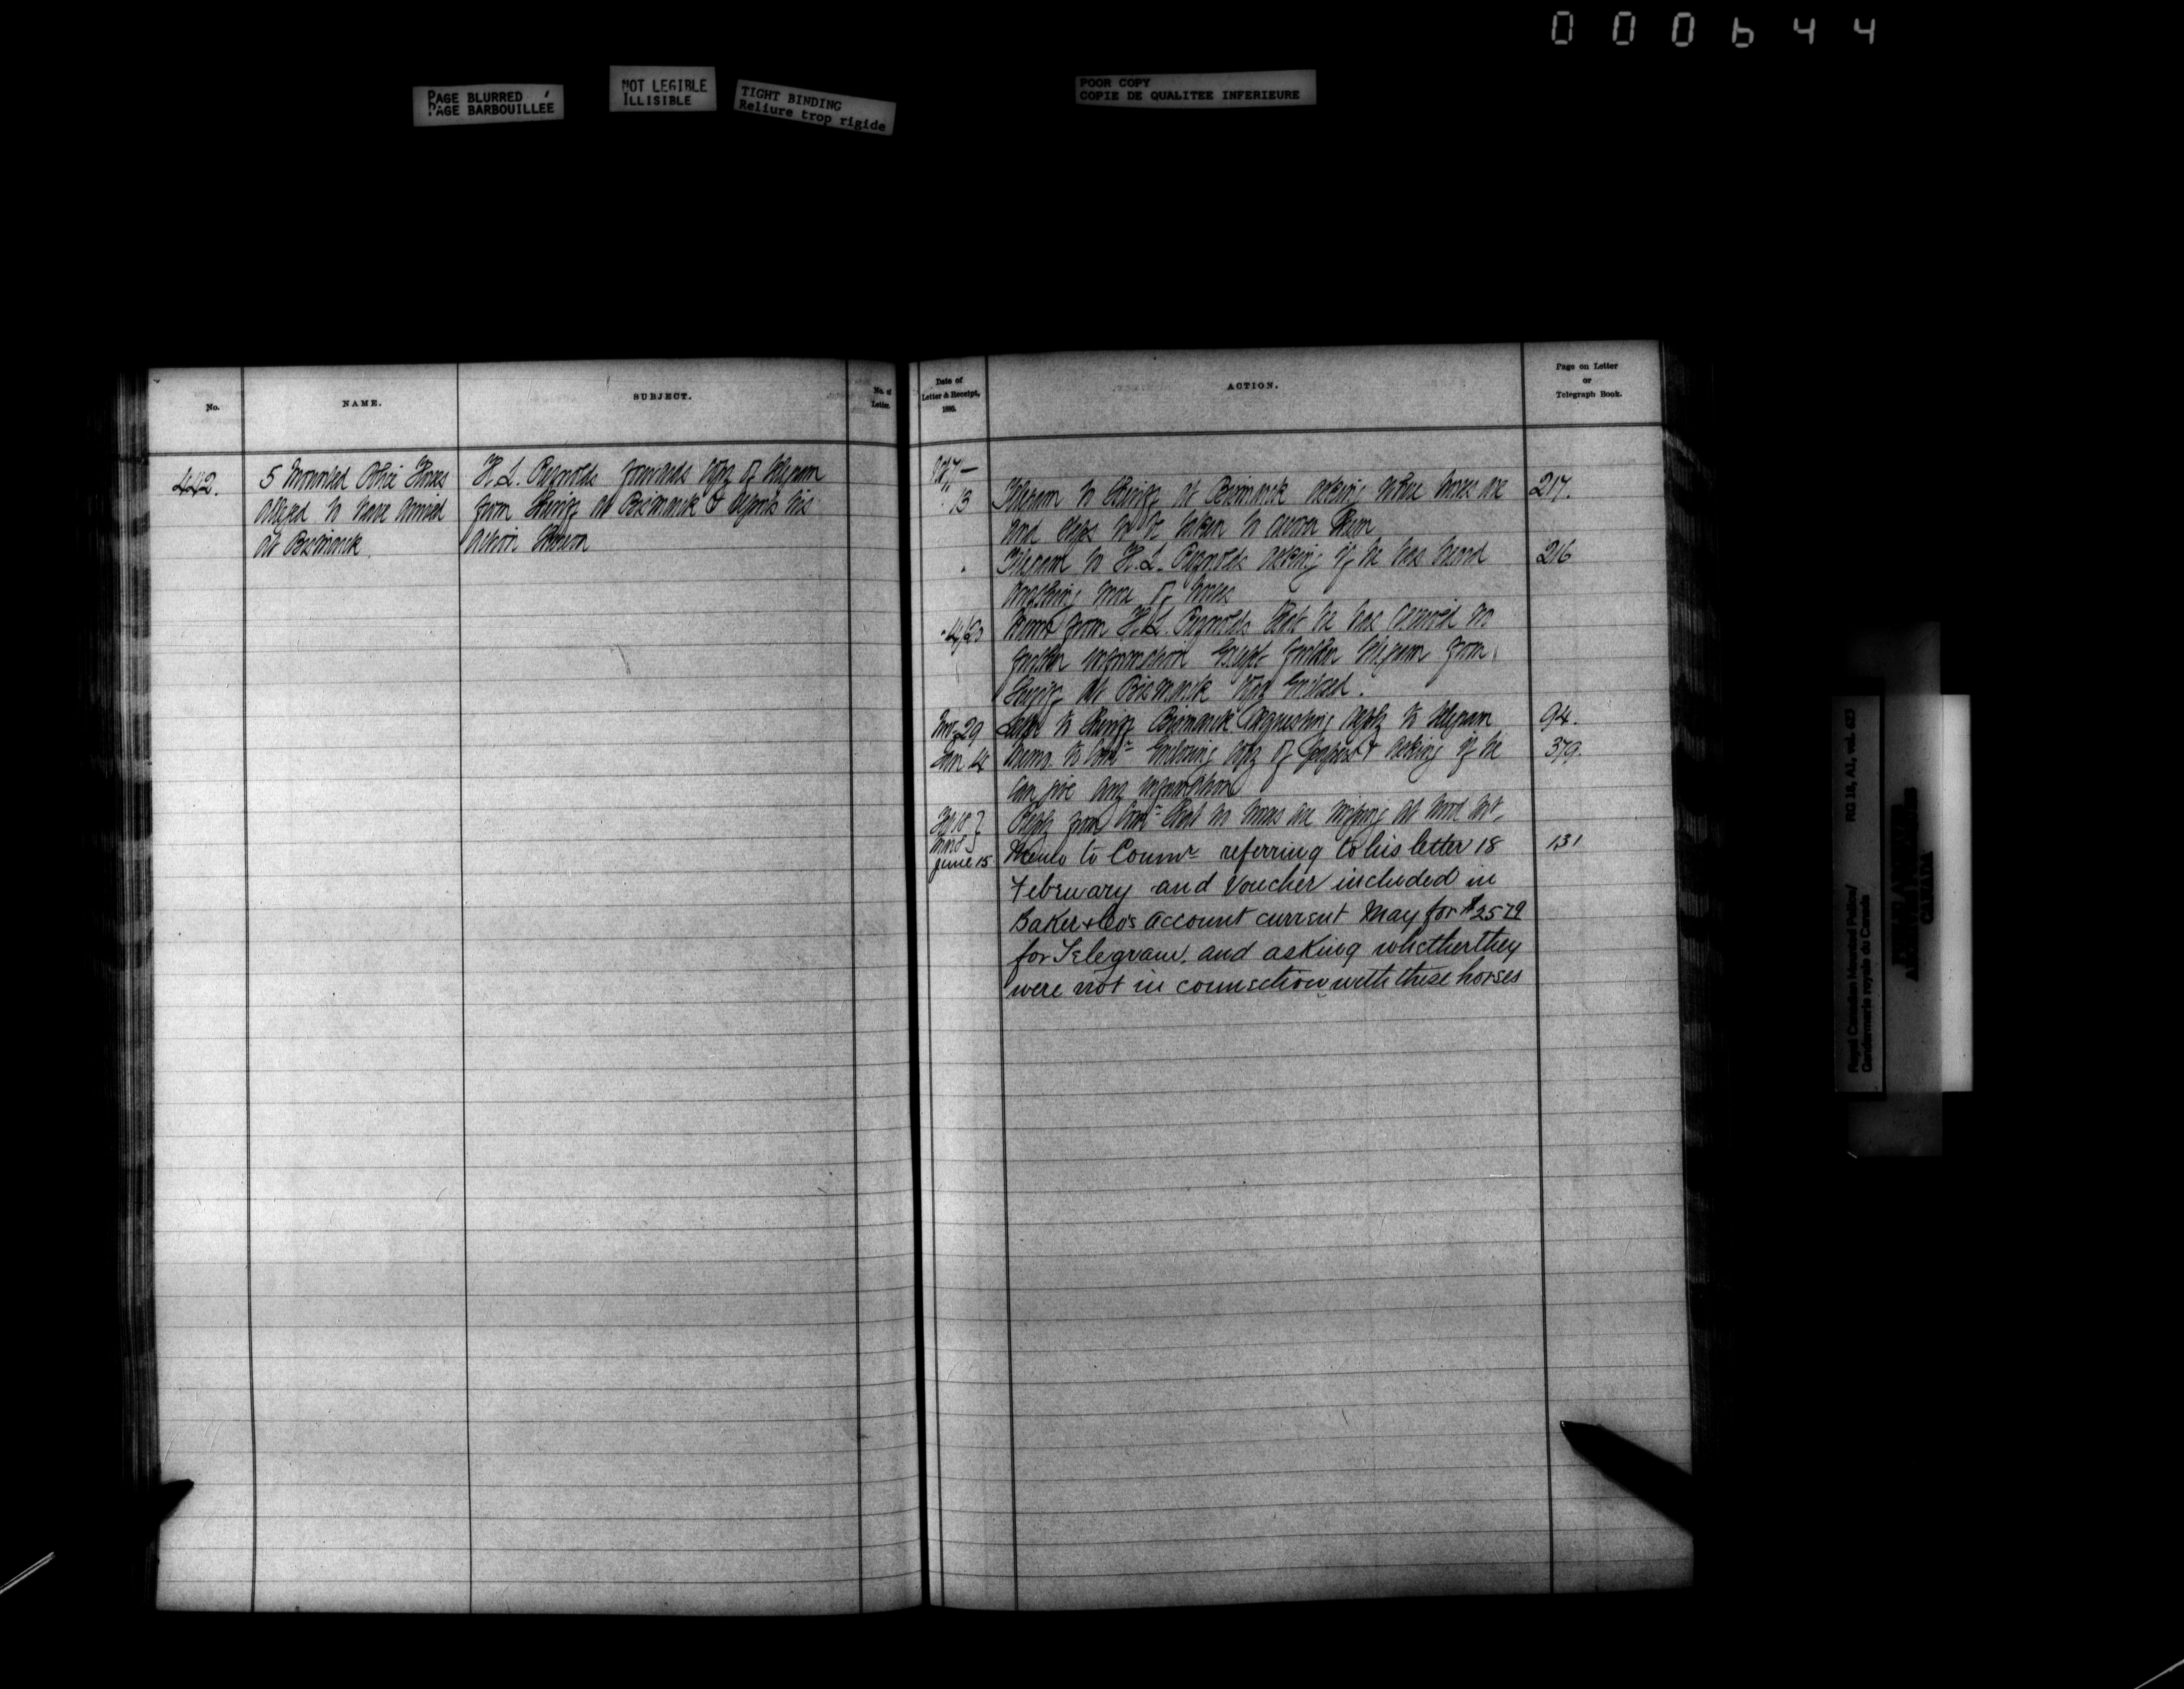 000644
PAGE BLURRED
PAGE BARBOUILLEE
NOT LEGIBLE
ILLISIBLE
TIGHT BINDING
Reliure trop rigide
POOR COPY
COPIE DE QUALITEE INFERIEURE
No.
NAME.
SUBJECT.
No. of
Letter.
Date of
Letter & Receipt,
1880.
ACTION.
Page on Letter
or
Telegraph Book.
442.
5 Mounted Police Horses
alleged to have arrived
at Bismarck
H. L. Reynolds forwards copy of telegram
from Sheriff at Bismarck & reports his
action thereon
Oct 7 —
" 13 Telegram to Sheriff at Bismarck asking where horses are 217.
and steps to be taken to recover them
" Telegram to H. L. Reynolds asking if he has heard 216
anything more of horses
from H. L. Reynolds that he has received no
further information except further telegram from
Sheriff at Bismarck copy enclosed.
Nov 29 Letter to Sheriff Bismarck requesting reply to telegram 94.
Jan 14 Memo. to Comr enclosing copy of papers & asking if he 379.
can give any information
Feb 18 }
Mar 8 }
Reply from Comr that no horses are missing at
June 15 Memo to Commr referring to his letter 18 131
February and Voucher included in
Baker & Co's account current May for $25 79
for Telegram, and asking whether they
were not in connection with these horses
Royal Canadian Mounted Police/
Gendarmerie royale du Canada
RG 18, A1, vol. 623
CANADA